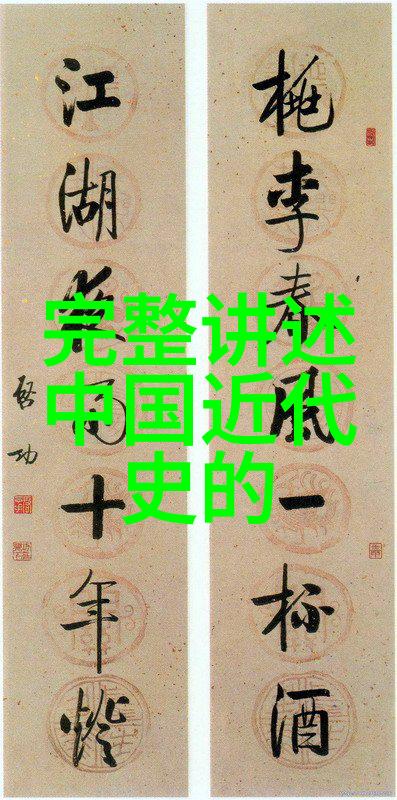 完整讲述
中国近代
史的
桃李春風一杯酒
江湖夜雨十年燈
启功